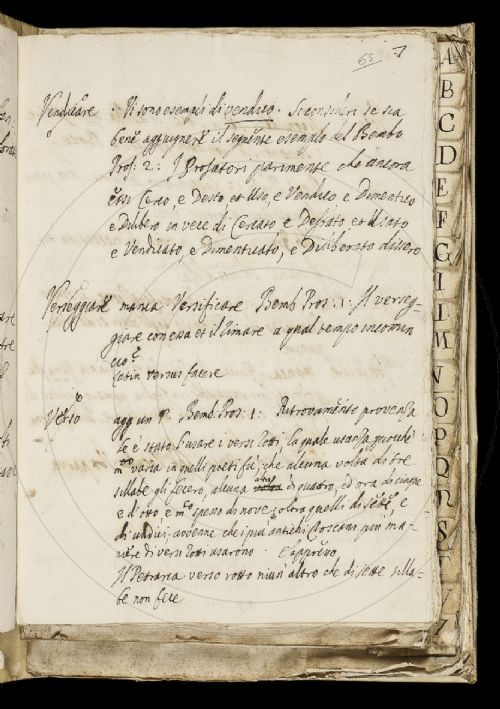 63 7
Vendicare : Vi sono esempli di vendico. Si consideri se sia
bene aggiugnere il seguente esempio del Bembo
Pros: 2: I Prosatori parimente che ancora
essi Cerco, e Desto et Uso, e Vendico e Dimentico
e Dilibero in vece di Cercato e Destato et Usato
e Vendicato, e Dimenticato, e Diliberato dissero
Verseggiare manca Versificare Bemb. Pros: 1: Il verseg-
giare con essa et il rimare a qual tempo incomin
ciò
Latin versus facere
Verso agg un P. Bemb. Pros: 1: Ritrovamento provenza
le è stato l'usare i versi rotti, la quale usanza perciochè
varia in quelli poeti fu, che alcuna volta di tre
sillabe gli fecero, alcuna altra di quattro, ed ora di cinque
e d'otto e spesso di nove, oltra quelli di sette, e
di undici, avenne che i più antichi Toscani più ma-
niere di versi rotti usarono. E appresso
Il Petrarca verso rotto niun' altro che di sette silla-
be non fece
A
B
C
D
E
F
G
I
L
M
N
O
P
Q
R
S
T
V
Z